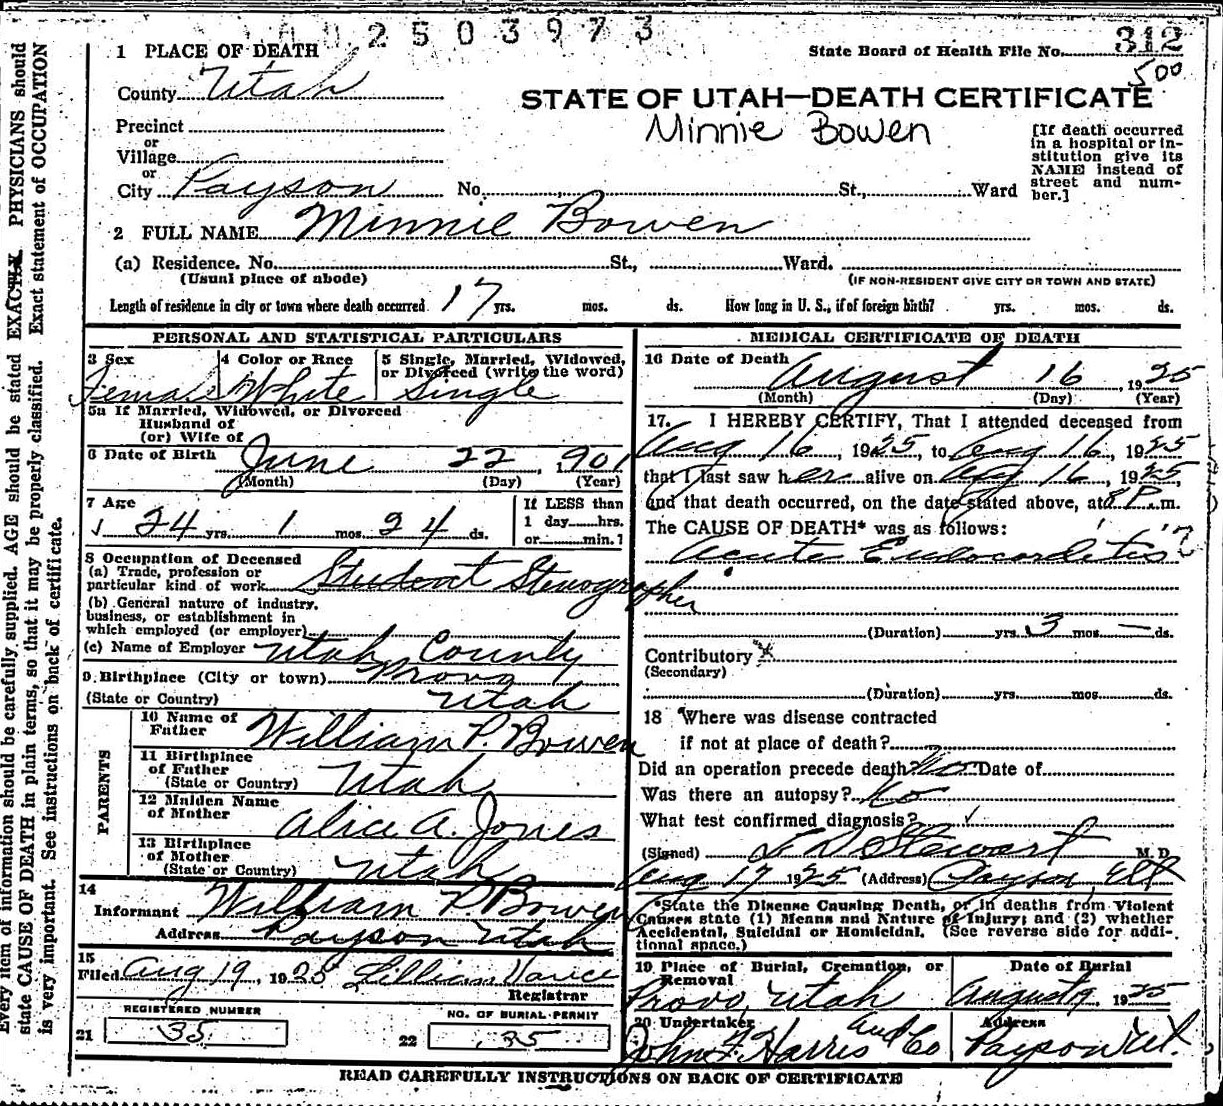 2503973
1 PLACE OF DEATH
State Board of Health File No. 312
500
County Utah
STATE OF UTAH—DEATH CERTIFICATE
Minnie Bowen
[If death occurred in a hospital or institution give its NAME instead of street and number.]
Precinct
or
Village
or
City Payson No. St., Ward
2 FULL NAME Minnie Bowen
(a) Residence. No. St., Ward.
(Usual place of abode) (IF NON-RESIDENT GIVE CITY OR TOWN AND STATE)
Length of residence in city or town where death occurred 17 yrs. mos. ds. How long in U. S., if of foreign birth? yrs. mos. ds.
PERSONAL AND STATISTICAL PARTICULARS
3 Sex 4 Color or Race 5 Single, Married, Widowed,
or Divorced (write the word)
Female White Single
5a If Married, Widowed, or Divorced
Husband of
(or) Wife of
6 Date of Birth June 22, 1901
(Month) (Day) (Year)
7 Age If LESS than
24 yrs. 1 mos. 24 ds. 1 day hrs.
or min.?
8 Occupation of Deceased
(a) Trade, profession or
particular kind of work Student Stenographer
(b) General nature of industry,
business, or establishment in
which employed (or employer)
(c) Name of Employer Utah County
9 Birthplace (City or town) Provo
(State or Country) Utah
PARENTS
10 Name of
Father William P. Bowen
11 Birthplace
of Father Utah
(State or Country)
12 Maiden Name
of Mother Alice A. Jones
13 Birthplace
of Mother Utah
(State or Country)
14
Informant William P Bowen
Address Payson Utah
15
Filed Aug 19, 1925 Lillian
Registrar
REGISTERED NUMBER
21 35
NO. OF BURIAL PERMIT
22 35
MEDICAL CERTIFICATE OF DEATH
16 Date of Death August 16, 1925
(Month) (Day) (Year)
17. I HEREBY CERTIFY, That I attended deceased from
Aug 16, 1925, to Aug 16, 1925
that I last saw her alive on Aug 16, 1925,
and that death occurred, on the date stated above, at 8 P. m.
The CAUSE OF DEATH* was as follows:
Acute Endocarditis
(Duration) yrs. 3 mos. — ds.
Contributory
(Secondary)
(Duration) yrs. mos. ds.
18 Where was disease contracted
if not at place of death?
Did an operation precede death? No Date of
Was there an autopsy? No
What test confirmed diagnosis?
(Signed) Stewart M. D.
Aug 17 1925 (Address) Payson, Ut
*State the Disease Causing Death, or in deaths from Violent
Causes state (1) Means and Nature of Injury; and (2) whether
Accidental, Suicidal or Homicidal. (See reverse side for addi-
tional space.)
19 Place of Burial, Cremation, or Date of Burial
Removal
Provo, Utah August 19, 1925
20 Undertaker Address
John F. Harris and Co Payson Ut.
READ CAREFULLY INSTRUCTIONS ON BACK OF CERTIFICATE
Every item of information should be carefully supplied. AGE should be stated EXACTLY. PHYSICIANS should
state CAUSE OF DEATH in plain terms, so that it may be properly classified. Exact statement of OCCUPATION
is very important. See instructions on back of certificate.